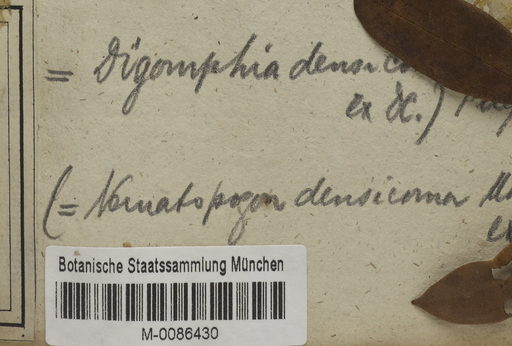 = Digomphia densico
ex DC.)
(= Nematopogon densicoma
ex
Botanische Staatssammlung München
M-0086430